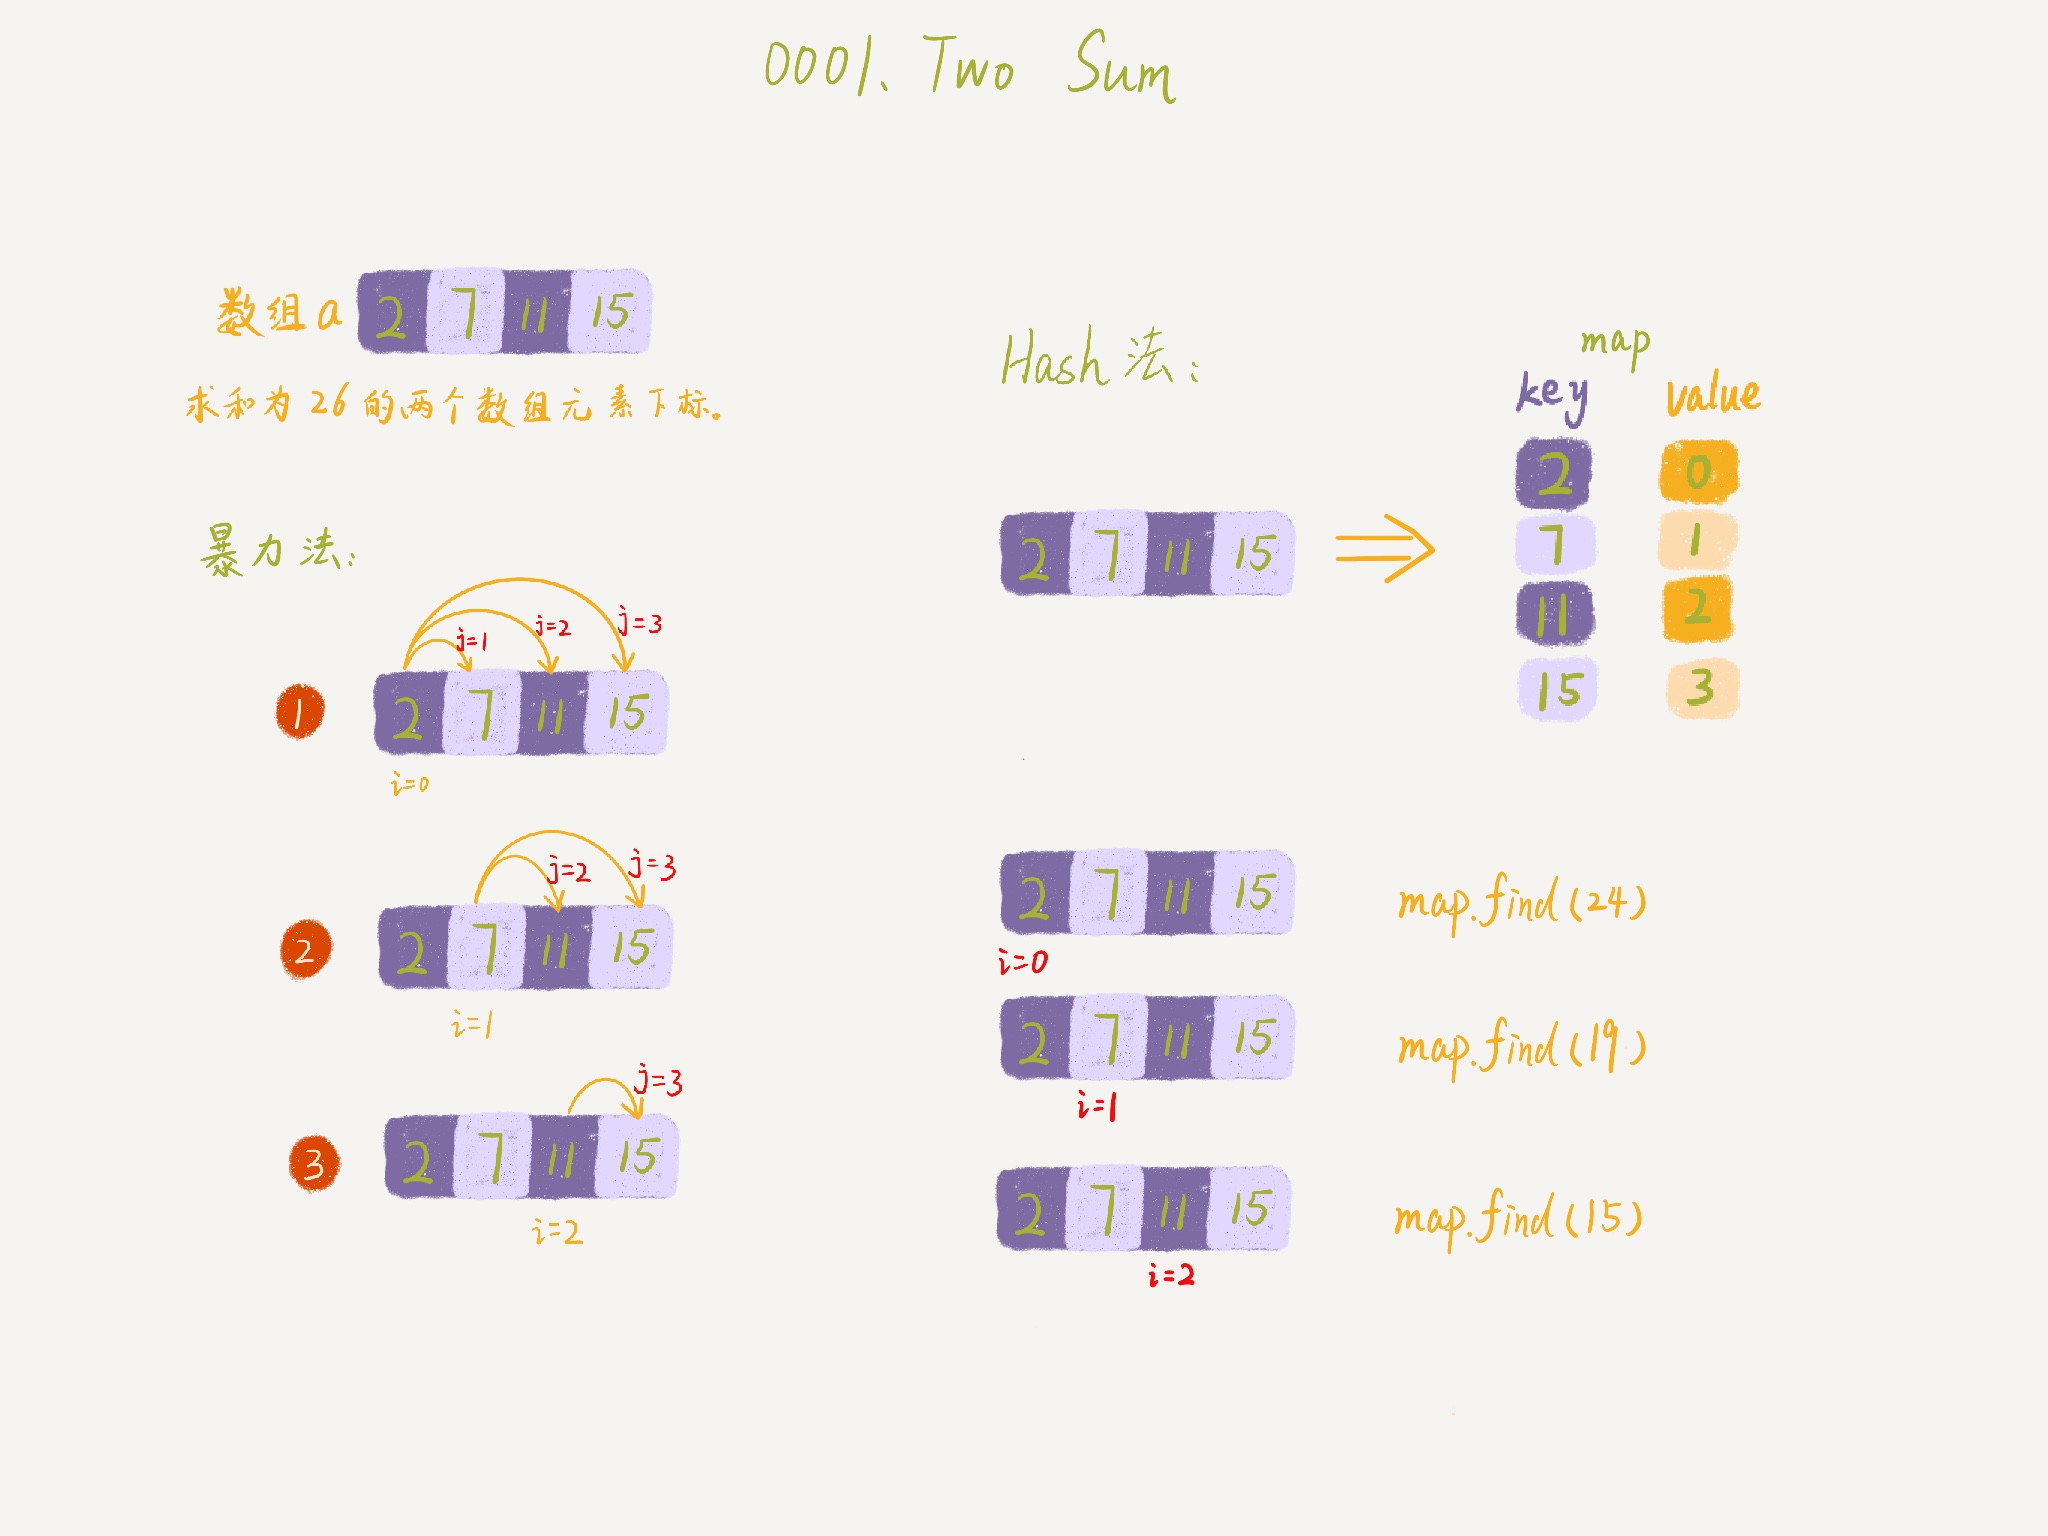 0001、Two Sum
数组a 2 7 11 15
求和为26的两个数组元素下标。
暴力法:
j=1 j=2 j=3
1 2 7 11 15
i=0
j=2 j=3
2 2 7 11 15
i=1
j=3
3 2 7 11 15
i=2
Hash法:
map
key value
2 7 11 15
2 0
7 1
11 2
15 3
2 7 11 15 map.find(24)
i=0
2 7 11 15 map.find(19)
i=1
2 7 11 15 map.find(15)
i=2